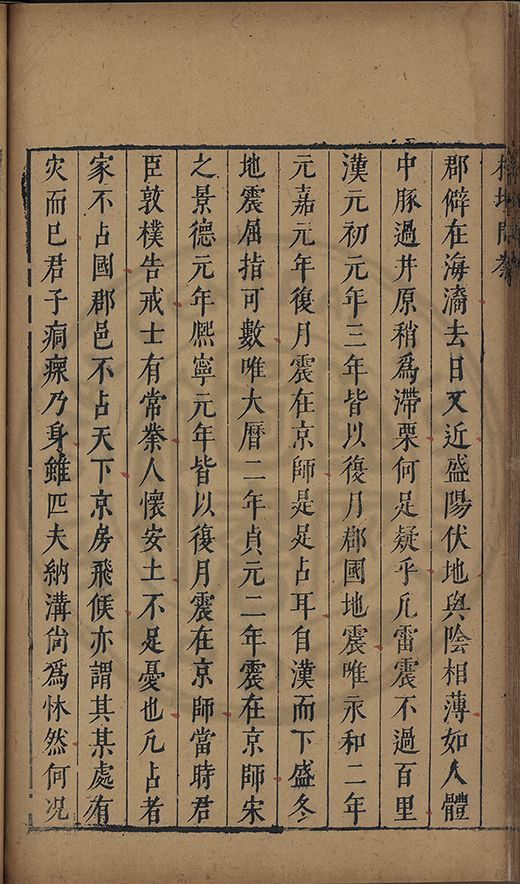 郡僻在海濱去日又近盛陽伏地與陰相薄如人體
中豚過井原稍為滯栗何足疑乎凡雷震不過百里
漢元初元年三年皆以復月郡國地震唯永和二年
元嘉元年復月震在京師是足占耳自漢而下盛冬
地震屈指可數唯大曆二年貞元二年震在京師宋
之景德元年熈寧元年皆以復月震在京師當時君
臣敦樸告戒士有常業人懷安土不足憂也凡占者
家不占國郡邑不占天下京房飛候亦謂其某處有
灾而已君子痌瘝乃身雖匹夫納溝尙為怵然何况